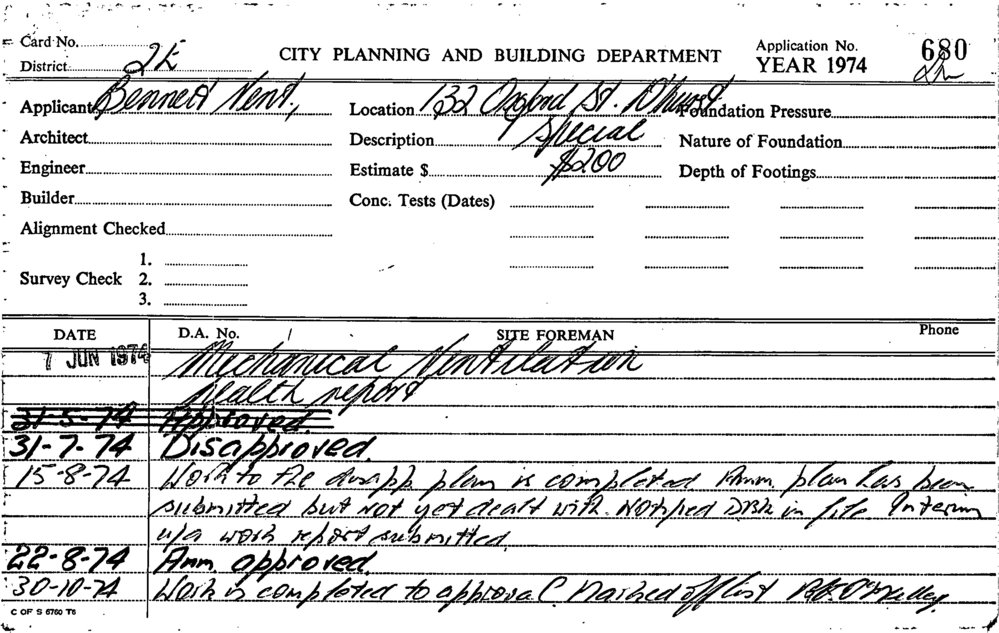 Card No.
District 2E
CITY PLANNING AND BUILDING DEPARTMENT
Application No. 680
YEAR 1974
Applicant Bennett Vent,
Location 132 Oxford St. D'hurst
Foundation Pressure
Architect
Description Special
Nature of Foundation
Engineer
Estimate $ $200
Depth of Footings
Builder
Conc. Tests (Dates)
Alignment Checked
Survey Check 1.
2.
3.
DATE D.A. No. SITE FOREMAN Phone
7 JUN 1974 Mechanical Ventilation
health report
31-5-74 Approved.
31-7-74 Disapproved.
15-8-74 Work to the disapp. plan is completed Amm. plan has been
submitted but not yet dealt with. Notified in file Interim
u/a work report submitted.
22-8-74 Amm. approved.
30-10-74 Work is completed to approval. Marked off list O'Malley
C OF S 6760 T6